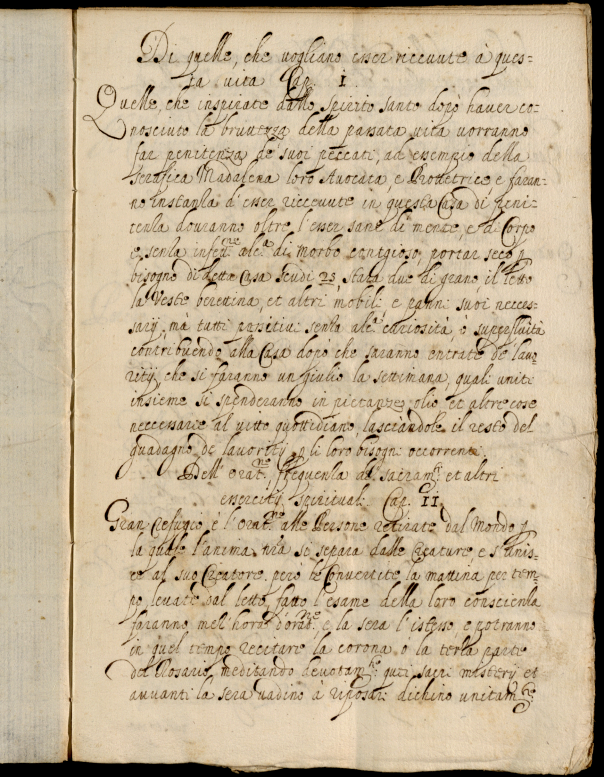 Di quelle, che vogliano esser ricevute à ques-
ta vita Cap. I.
Quelle, che inspirate dallo Spirito santo dopò haver co-
nosciuto la bruttezza della passata vita vorranno
far penitenza de suoi peccati, ad essempio della
serafica Madalena loro Avocata, e Protetrice, e faran-
no instanza d'esser riccevute in questa Casa di Peni-
tenza dovranno oltre l'esser sane di mente, e di Corpo
e senza infett.ne alc.a di morbo contagioso, portar seco p
bisogno di detta Casa scudi 25, stara due di grano, il letto
la Veste beretina, et altri mobili e panni suoi neces-
sarij, mà tutti positivi senza alc.a curiosità, ò superfluità
contribuendo alla Casa dopò che saranno entrate de lavo-
ritij, che si faranno un giulio la settimana, quali uniti
insieme si spenderanno in pietanze, olio, et altre cose
neccessarie al vitto quottidiano, lasciandole il resto del
guadagno de lavoritij p li loro bisogni occorrenti.
Dell' orat.ne, frequenza de sacram.ti et altri
essercitij spirituali Cap. II.
Gran Refugio è l'orat.ne alle Persone retirate dal Mondo p
la quale l'anima si separa dalle Creature, e s'unis-
ce al suo Creatore, però le Convertite la mattina per tem-
po, levate dal letto, fatto l'esame della loro conscienza
faranno mez'hora d'orat.ne, e la sera l'istesso, e potranno
in quel tempo recitare la corona, o la terza parte
del Rosario, meditando devotam.te quei sacri misterij et
avvanti la sera vadino a riposar dichino unitam.te